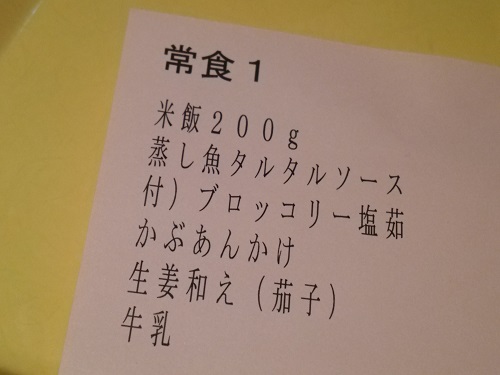 常食1
米飯200g
蒸し魚タルタルソース
付)ブロッコリー塩茹
かぶあんかけ
生姜和え(茄子)
牛乳